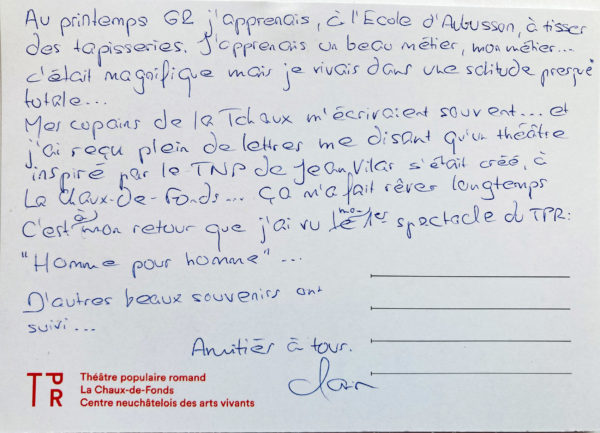 Au printemps 62 j'apprenais, à l'Ecole d'Aubusson, à tisser
des tapisseries. J'apprenais un beau métier, mon métier...
c'était magnifique mais je vivais dans une solitude presque
totale...
Mes copains de la Tchaux m'écrivaient souvent... et
j'ai reçu plein de lettres me disant qu'un théâtre
inspiré par le TNP de Jean Vilar s'était créé, à
La Chaux-de-Fonds... ça m'a fait rêver longtemps
C'est à mon retour que j'ai vu mon 1er spectacle du TPR:
"Homme pour homme"...
D'autres beaux souvenirs ont
suivi...
Amitiés à tous.
TPR
Théâtre populaire romand
La Chaux-de-Fonds
Centre neuchâtelois des arts vivants